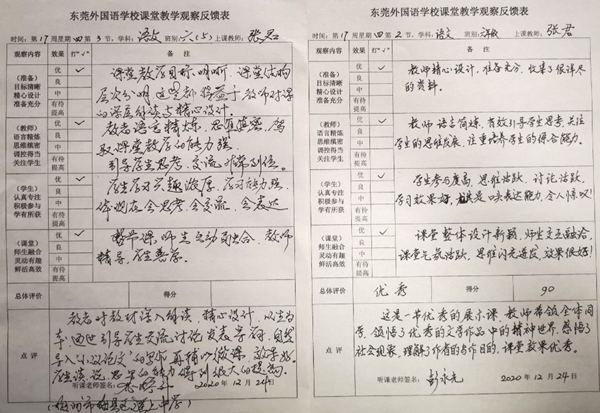 东莞外国语学校课堂教学观察反馈表
时间:第17周星期四第3节,学科:语文 班:六(5)上课教师:张君
观察内容 效果 打“√” 备注
(准备)
目标清晰
精心设计
准备充分
优 √
良
中
有待提高
课堂教学目标明晰,课堂结构
层次分明,这些都得益于教师对课
的深度解读与精心设计。
(教师)
语言精炼
思维缜密
调控得当
关注学生
优 √
良
中
有待提高
教者语言精炼,思维缜密,驾
驭课堂教学的能力强。
引导学生思考、交流,
(学生)
认真专注
积极参与
学有所获
优 √
良
中
有待提高
学生学习兴趣浓厚,学习能力强,
体现在会思考、会交流、会表达
(课堂)
师生融合
灵动有趣
鲜活高效
优 √
良
中
有待提高
整节课,师生互动融合,教师
辅导,学生
总体评价 得分
点评
教者对教材深入解读,精心设计,以生为
本,通过引导学生交流讨论,发表学府,自然
导入小议论文的写作,再辅以微课,教学
生读、说、思的能力得到极大的提高。
听课老师签名:
2020年12月24日
东莞外国语学校课堂教学观察反馈表
时间:第17周星期四第2节,学科:语文 上课教师:张君
观察内容 效果 打“√” 备注
(准备)
目标清晰
精心设计
准备充分
优 √
良
中
有待提高
教师精心设计,准备充分,收集了很详尽
的资料。
(教师)
语言精炼
思维缜密
调控得当
关注学生
优 √
良
中
有待提高
教师语言简炼,有效引导学生思考,关注
学生的思维发展,注重培养学生的综合能力。
(学生)
认真专注
积极参与
学有所获
优 √
良
中
有待提高
学生参与度高,思维活跃,讨论活跃,
学习效果好,尤其是口头表达能力,令人惊叹!
(课堂)
师生融合
灵动有趣
鲜活高效
优 √
良
中
有待提高
课堂整体设计新颖,师生交互融洽,
课堂气氛活跃,思维闪光迸发,效果很好!
总体评价 优秀 得分 90
点评
这是一节优秀的展示课,教师带领全体同
学,领悟了优秀的文学作品中的精神世界,感悟了
社会现象,理解了作者的写作目的,课堂效果优秀。
听课老师签名:彭永光
2020年12月24日